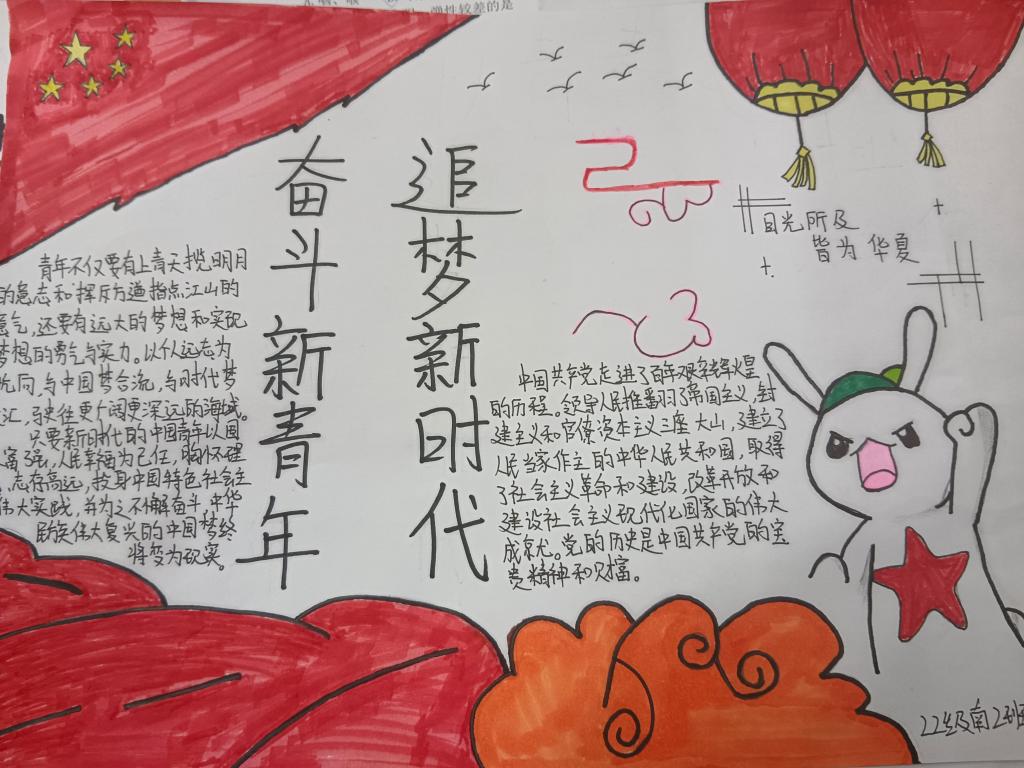 弹性较差的是
追梦新时代
奋斗新青年
目光所及
皆为华夏
青年不仅要有上青天揽明月
的意志和挥斥方遒指点江山的
意气,还要有远大的梦想和实现
梦想的勇气与实力。以个人远志为
光向,与中国梦合流,与时代梦
汇,驶往更广阔更深远的海域。
只要新时代的中国青年以国
富强,人民幸福为己任,胸怀理
,志存高远,投身中国特色社会主
伟大实践,并为之不懈奋斗,中华
民族伟大复兴的中国梦终
将变为现实。
中国共产党走进了百年艰辛辉煌
的历程。领导人民推翻了帝国主义,封
建主义和官僚资本主义三座大山,建立了
人民当家作主的中华人民共和国,取得
了社会主义革命和建设,改革开放和
建设社会主义现代化国家的伟大
成就。党的历史是中国共产党的宝
贵精神和财富。
22级南2班